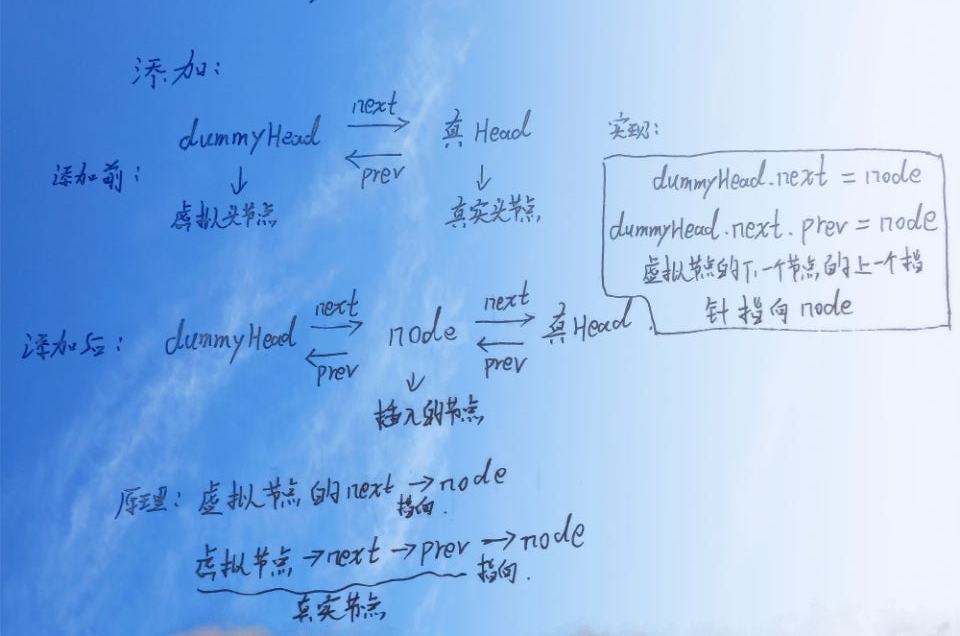 添加:
dummyHead next 真Head
prev
添加前:
虚拟头节点 真实头节点
实现:
dummyHead.next = node
dummyHead.next.prev = node
虚拟节点的下一个节点的上一个指
针指向 node
添加后: dummyHead next node next 真Head
prev prev
插入的节点
原理: 虚拟节点的next → node
指向.
虚拟节点 → next → prev → node
指向.
真实节点